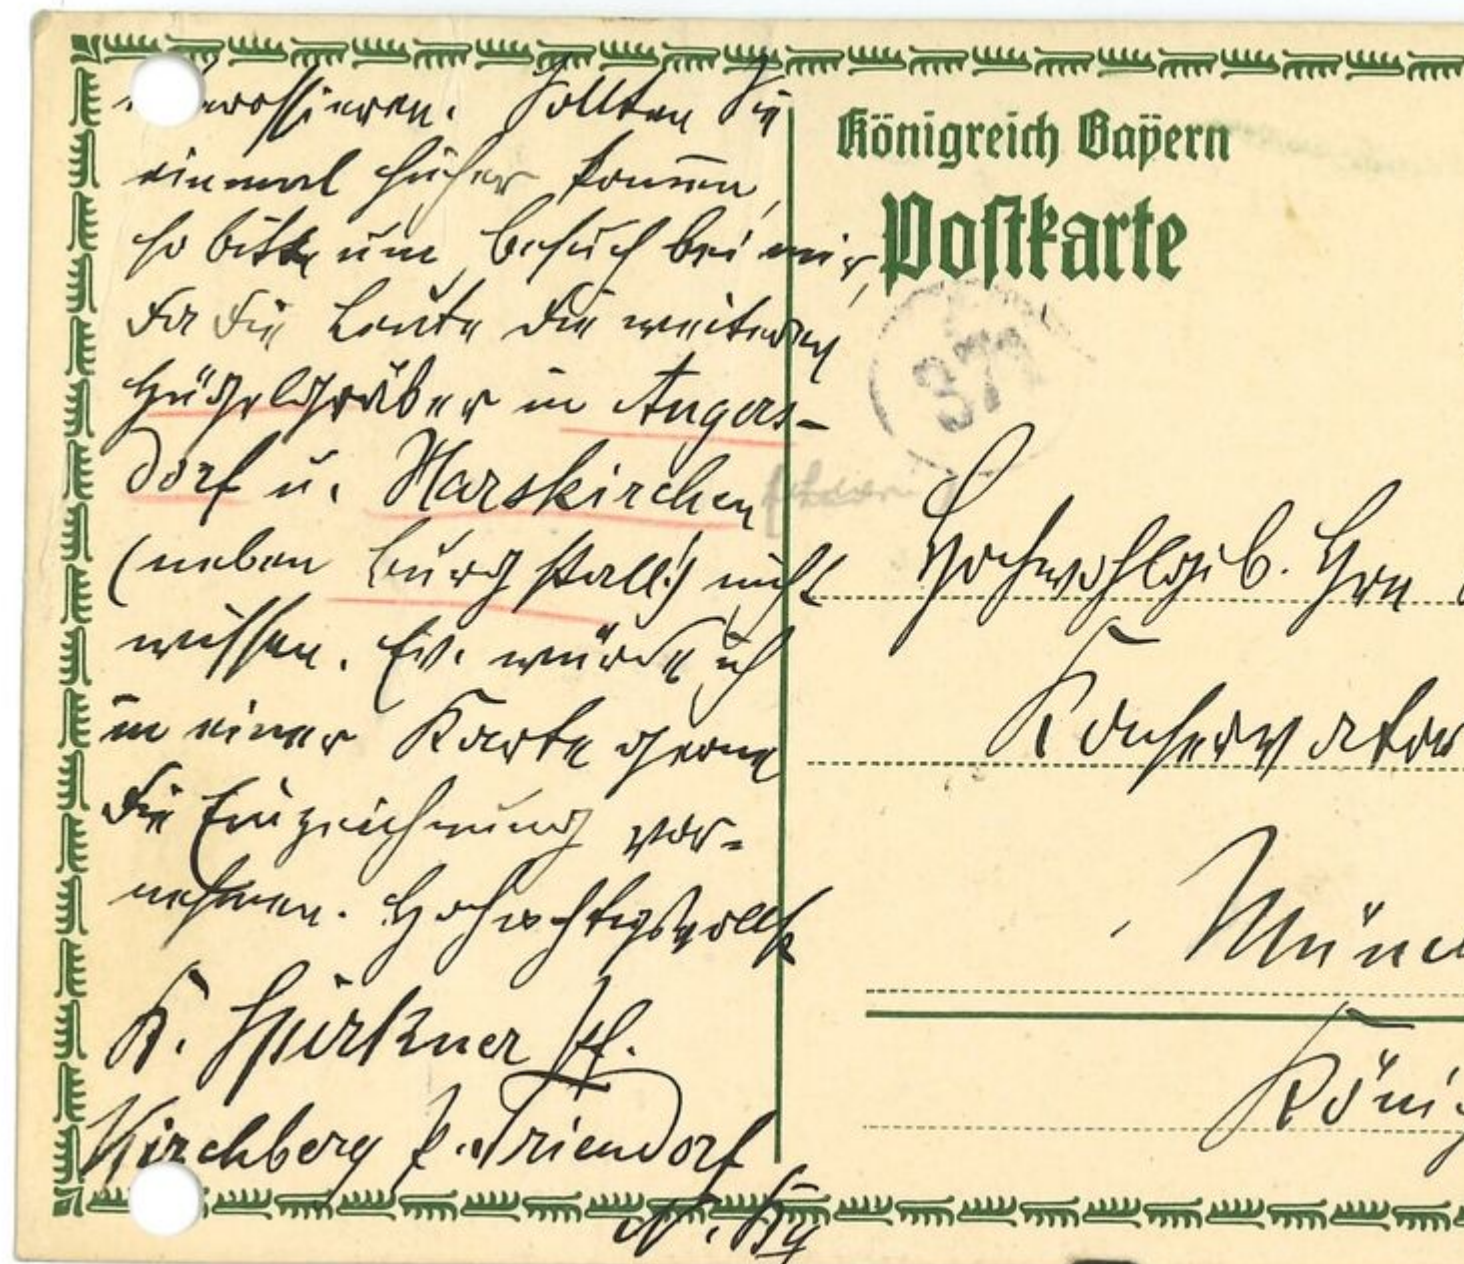 Sollten Sie
einmal hieher kom̅en,
so bitte um Besuch bei mir,
da die Leute die weiteren
Hügelgräber in Angers-
dorf u. Marskirchen
(neben Burgstall!) nicht
wissen. Ev. würde ich
in einer Karte gerne
die Einzeichnung vor-
nehmen. Hochachtungsvollst
K. Spirkner Pf.
Kirchberg P. Triendorf
N. By
Königreich Bayern
Postkarte
377
Hochwohlgeb. Hrn
Konservator
Münc
König